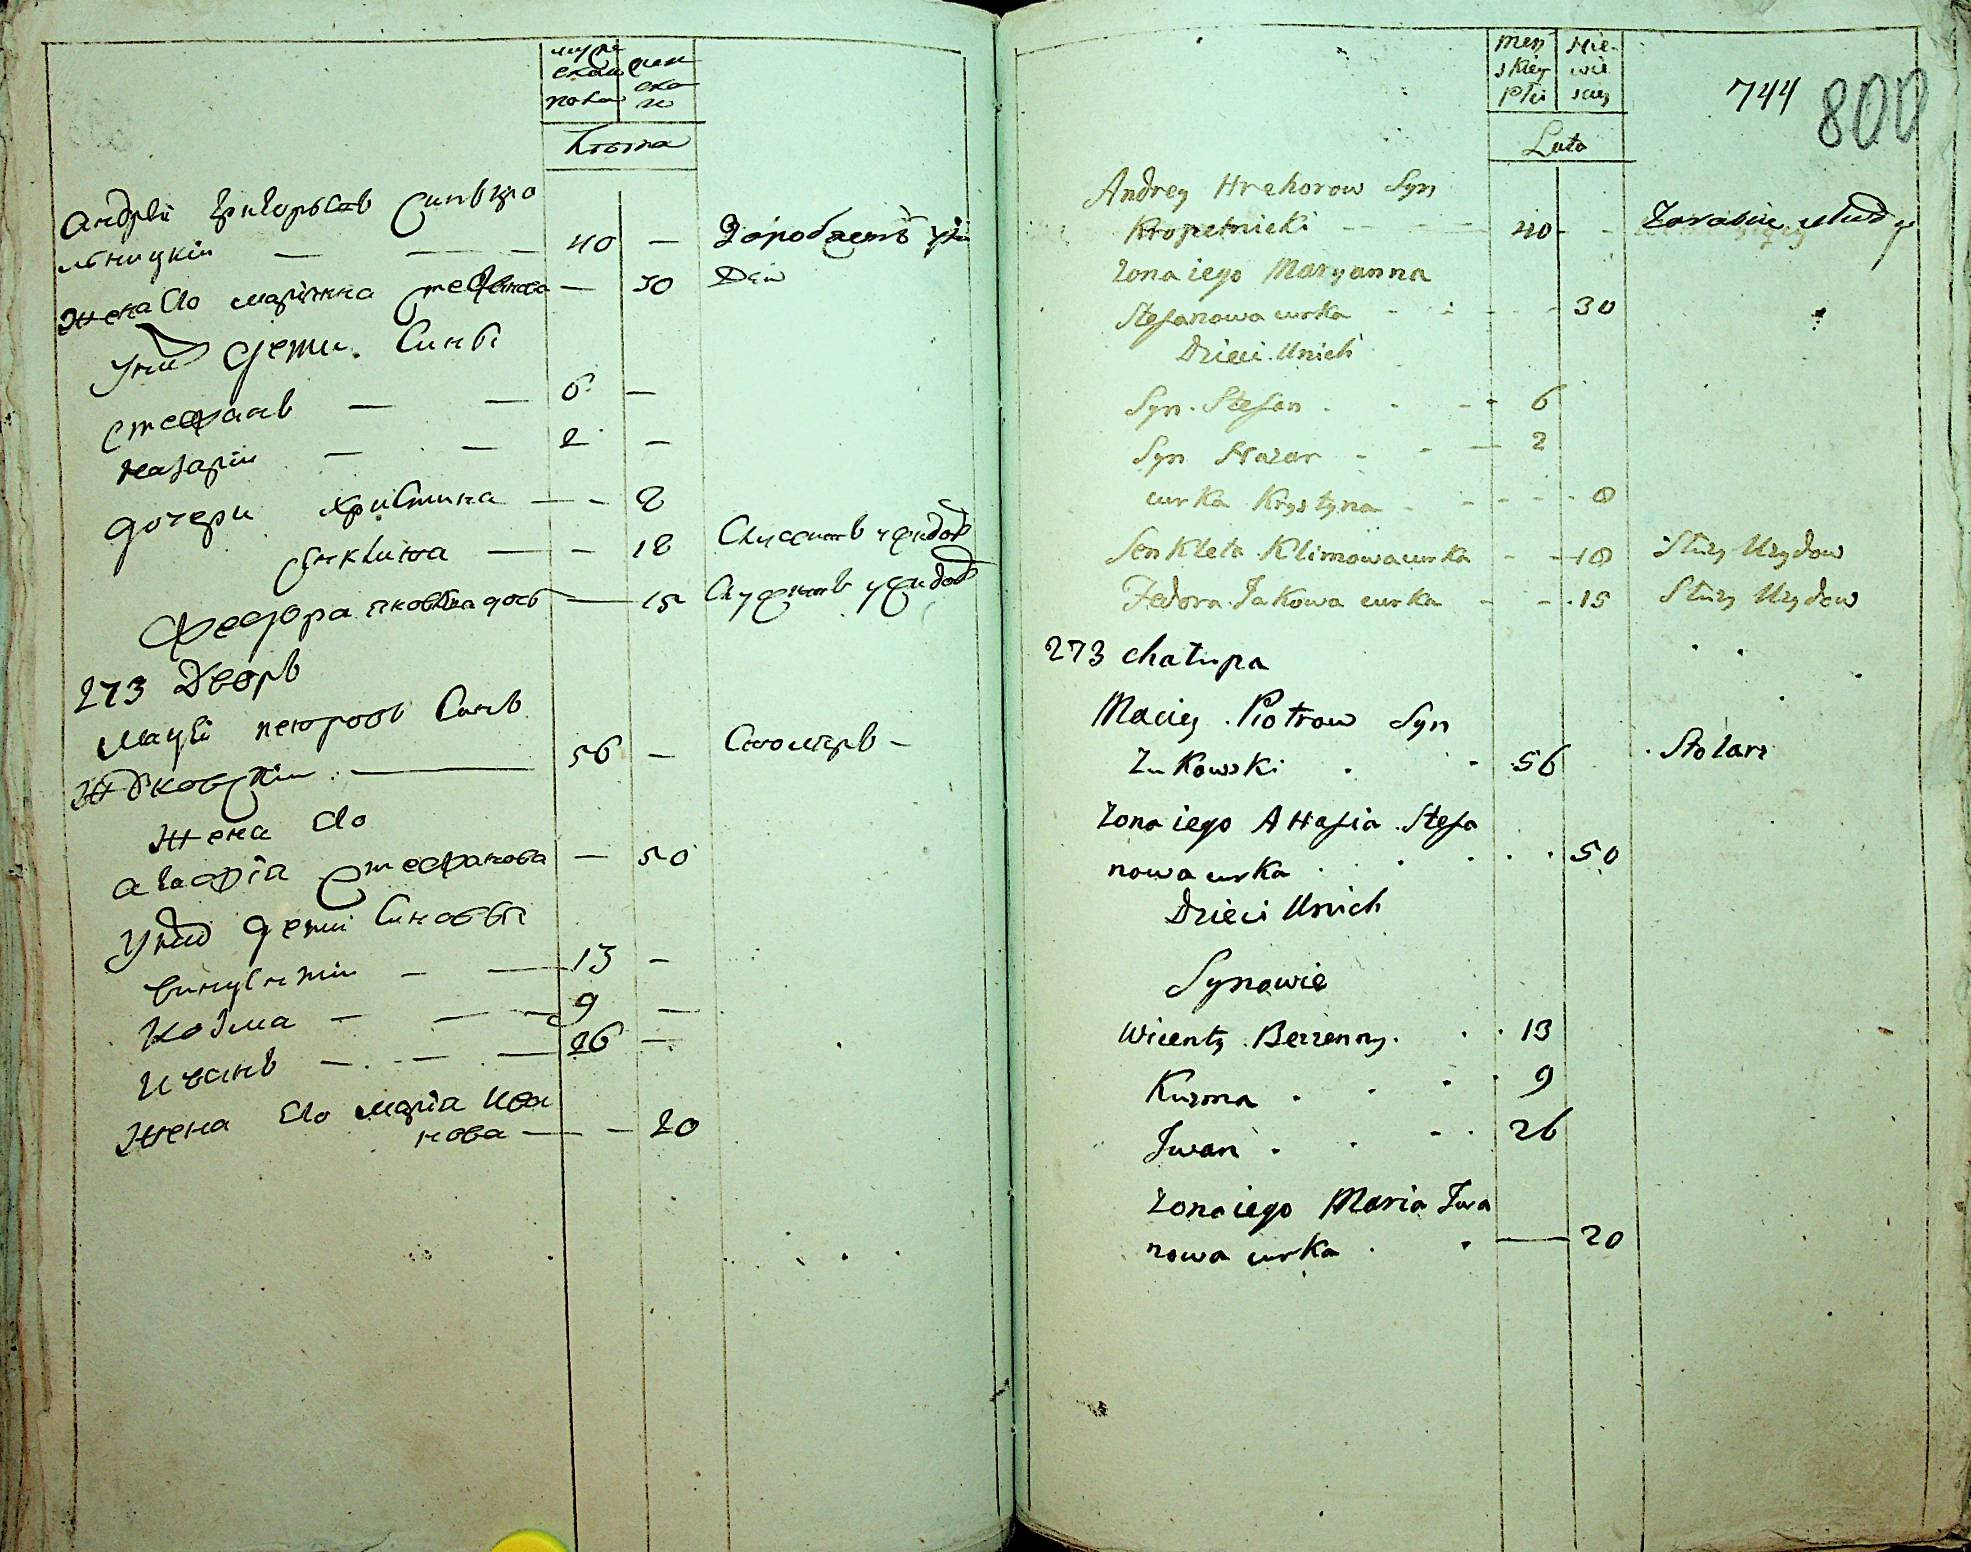 муже
ска
пола
жен
ска
го
Лѣта
Андрей Григорьевъ Синъ Кро
пѣницкій — — — 40 —
Заробляетъ
Жена Его Маріянна Стефанова — 30
Унихъ Дети. Синъ
Стефанъ — — 6 —
Назарій — — 2 —
дочери Христина — — 8
Синклита — — 18 Служитъ у жидовъ
Феодора яковлева дочь — 15 Служитъ у жидовъ
273 Дворъ
Мацей петровъ Синъ
Жуковскій — 56 — Столяръ —
Жена Его
Агафія Стефанова — 50
Унихъ дети Синовья
Винцентій — — 13 —
Козма — — — 9 —
Иванъ — — — 26 —
Жена Его Марія Ива
нова — — 20
męs
skiey
płci
Nie
wie
sciey
Lata
744
800
Andrey Hrehorow Syn
Kropetnicki - - - 40 - - Zarabia
Zona iego Maryanna
Stefanowa curka - - - - 30
Dzieci Unich
Syn. Stefan . - - - 6
Syn Nazar - - - 2
curka Krystyna - - - - - 8
Senkleta Klimowa curka - - 18 Służy Uzydow
Fedora Jakowa curka - - 15 Służy Uzydow
273 chałupa
Maciey Piotrow Syn
Zukowski . - 56 . Stolarz
Zona iego Ahafia Stefa
nowa curka . . . . . 50
Dzieci Unich
Synowie
Wicenty Bezzenny . . . 13
Kuzma . . . . 9
Iwan . . - . 26
Zona iego Maria Iwa
nowa curka . . — 20